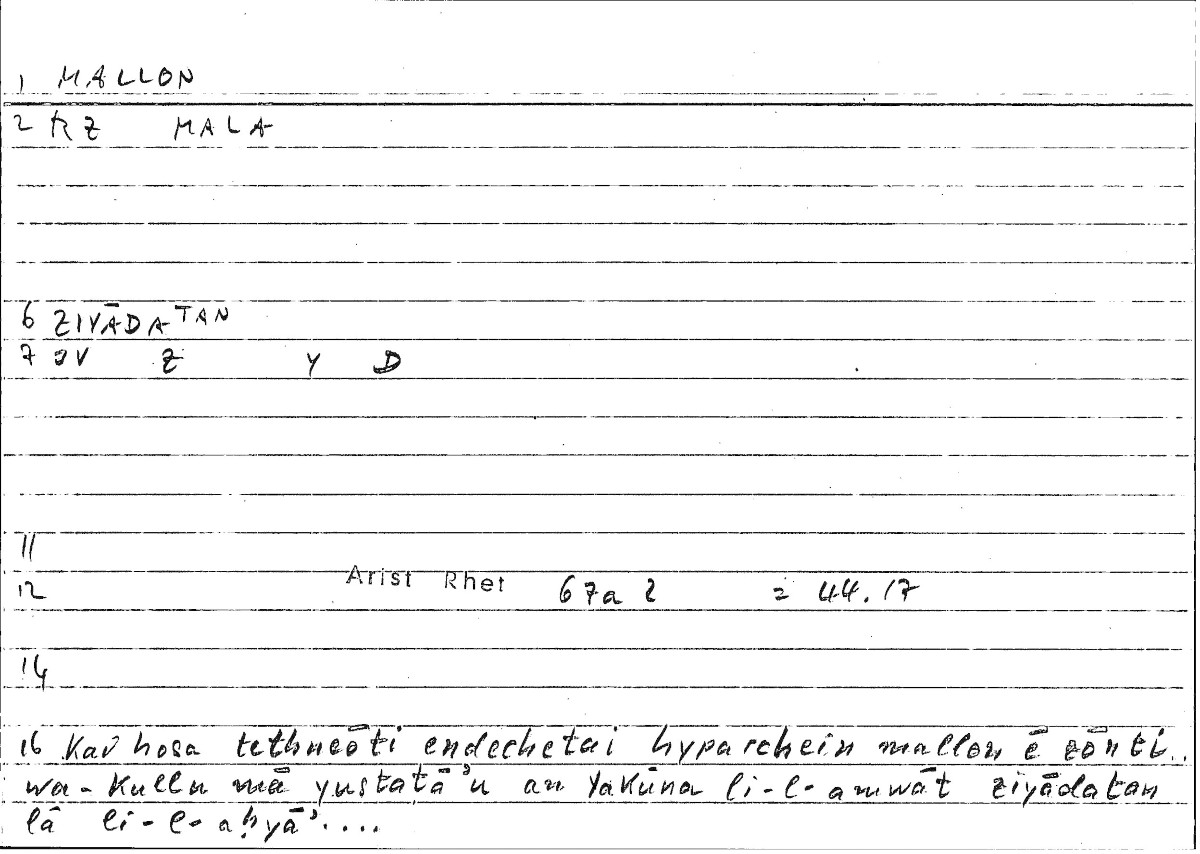 1 MALLON
2 RZ MALA
6 ZIYĀDATAN
7 JV Z Y D
11
12 Arist Rhet 67a 2 = 44.17
14
16 Kaì hosa tethneōti endechetai hyparchein mallon ē zōnti..
wa-Kullu mā yustatā'u an yakūna li-l-amwāt ziyādatan
lā li-l-aḥyā'....